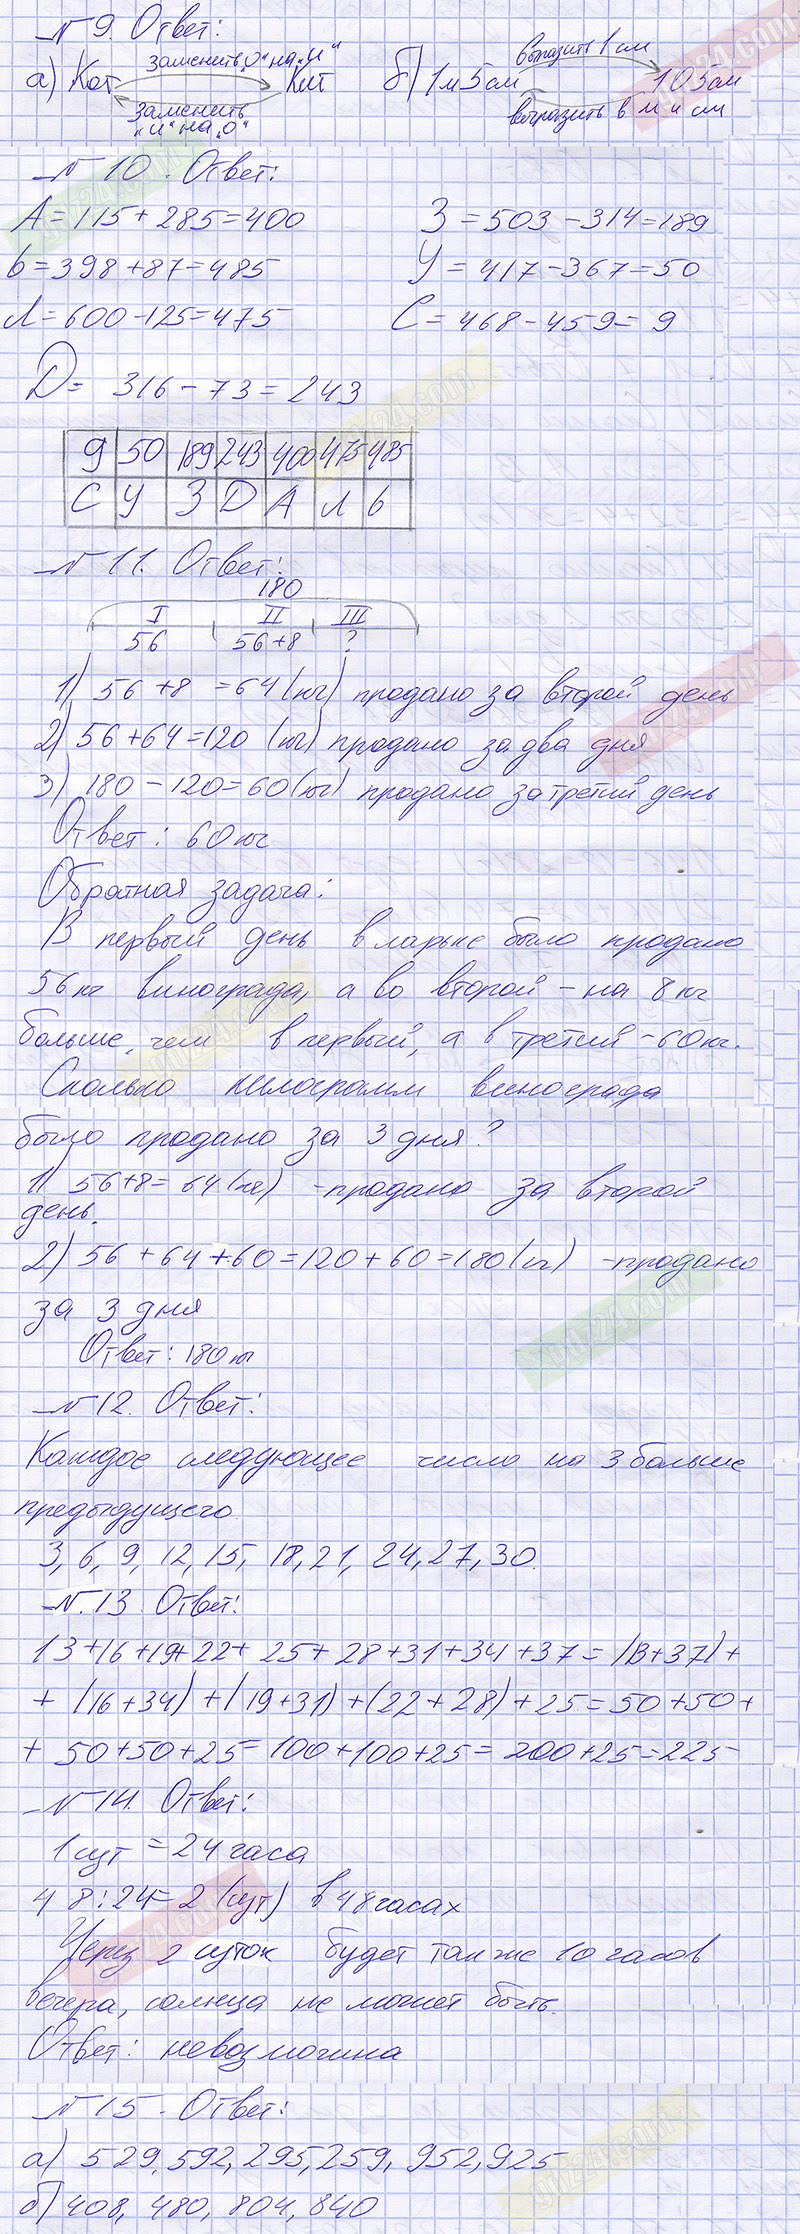 № 9. Ответ:
заменить „о“ на „и“
выразить 1 см
а) Кот Кит б) 1 м 5 см 105 см
заменить
„и“ на „о“
выразить в м и см
№ 10. Ответ:
А = 115 + 285 = 400 З = 503 - 314 = 189
Ь = 398 + 87 = 485 У = 417 - 367 = 50
Л = 600 - 125 = 475 С = 468 - 459 = 9
Д = 316 - 73 = 243
9 50 189 243 400 475 485
С У З Д А Л Ь
№ 11. Ответ:
180
I II III
56 56+8 ?
1) 56 + 8 = 64 (кг) продано за второй день
2) 56 + 64 = 120 (кг) продано за два дня
3) 180 - 120 = 60 (кг) продано за третий день
Ответ: 60 кг
Обратная задача:
В первый день в ларьке было продано
56 кг винограда, а во второй - на 8 кг
больше, чем в первый, а в третий - 60 кг.
Сколько килограмм винограда
было продано за 3 дня?
1) 56 + 8 = 64 (кг) - продано за второй
день.
2) 56 + 64 + 60 = 120 + 60 = 180 (кг) - продано
за 3 дня
Ответ: 180 кг
№ 12. Ответ:
Каждое следующее число на 3 больше
предыдущего.
3, 6, 9, 12, 15, 18, 21, 24, 27, 30.
№ 13. Ответ:
13 + 16 + 19 + 22 + 25 + 28 + 31 + 34 + 37 = (13 + 37) +
+ (16 + 34) + (19 + 31) + (22 + 28) + 25 = 50 + 50 +
+ 50 + 50 + 25 = 100 + 100 + 25 = 200 + 25 = 225
№ 14. Ответ:
1 сут = 24 часа
48 : 24 = 2 (сут) в 48 часах
Через 2 суток будет также 10 часов
вечера, солнца не может быть.
Ответ: невозможна
№ 15. Ответ:
а) 529, 592, 295, 259, 952, 925
б) 408, 480, 804, 840